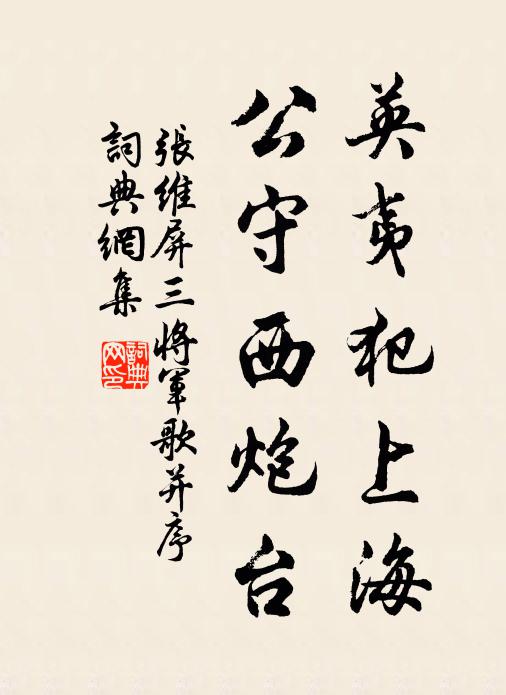 英夷犯上海
公守西炮台
張維屏三將軍歌并序
詞典網集
詞典
网印